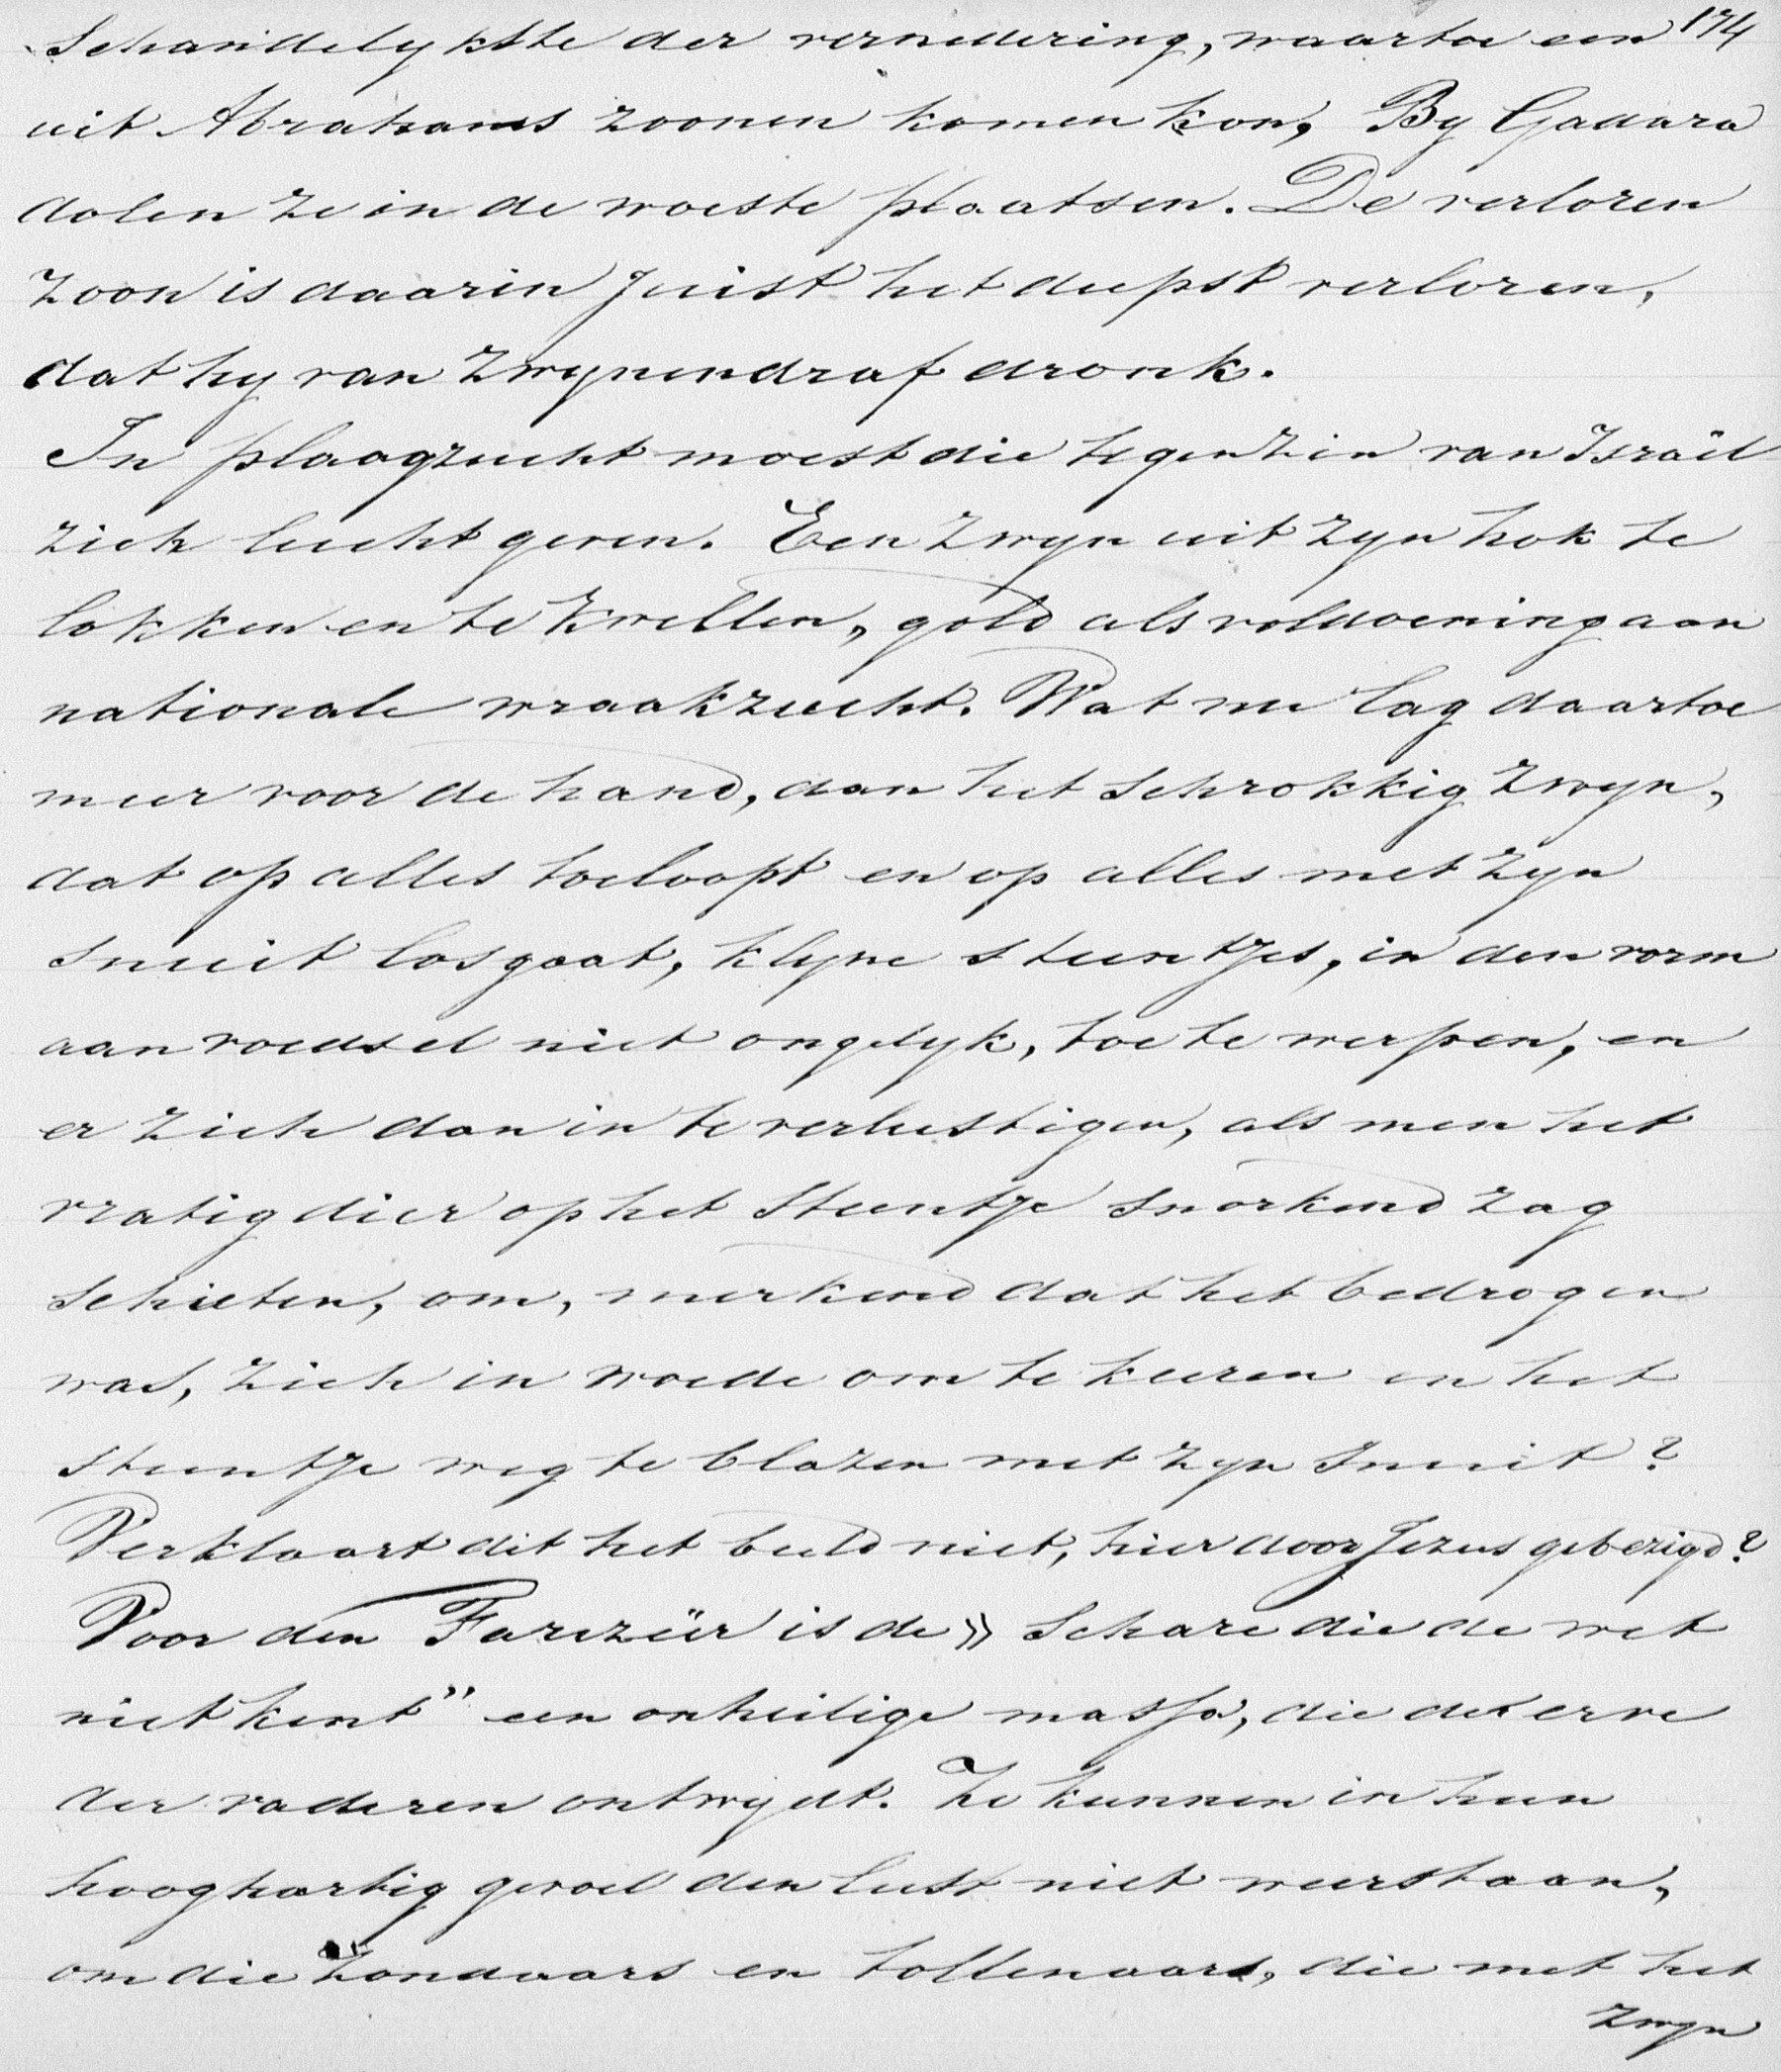 174
schandelykste der vernedering, waartoe een
uit Abrahams zoonen komen kon, By Gadara
dolen ze in de woeste plaatsen. De verloren
zoon is daarin juist het diepst verloren,
dat hy van zwynendraf dronk.
In plaagzucht moest die tegenzin van Israël
zich lucht geven. Een zwyn uit zyn hok te
lokken en te kwellen, gold als voldoening aan
nationale wraakzucht. Wat nu lag daartoe
meer voor de hand, dan het schrokkig zwyn,
dat op alles toeloopt en op alles met zyn
snuit losgaat, kleyne steentjes, in den vorm
aan voedsel niet ongelyk, toe te werpen, en
er zich dan in te verlustigen, als men het
vratig dier op het steentje snorkend zag
schieten, om, merkend dat het bedrogen
was, zich in woede om te keeren en het
steentje weg te blazen met zyn snuit?
Verklaart dit het beeld niet, hier door Jezus gebezigd?
Voor den Farizeër is de "schare die de wet
niet kent" een onheilige massa, die de erve
der vaderen ontwydt. Ze kunnen in hun
hooghartig gevoel den lust niet weerstaan,
om die zondaars en tollenaars, die met het
zwyn